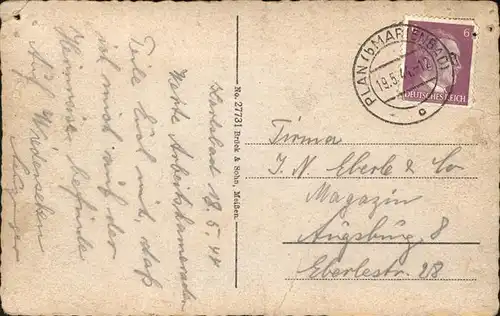 Karlsbad 18.5.44
Werte Arbeitskameraden
Teile Euch mit, daß
ich mich auf der
Heimreise befinde
Auf Wiedersehen
No. 27731 Brück & Sohn, Meißen.
PLAN (b. MARIENBAD)
19.5.44.-12
c
6
DEUTSCHES REICH
Firma
J. N. Eberle & Co
Magazin
Augsburg 8
Eberlestr. 28